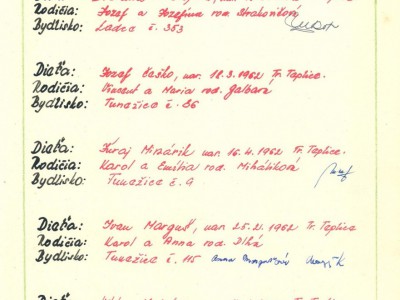 Rodičia: Jozef a Jozefína rod. Strakoníková
Bydlisko: Ladce č. 353
Dieťa: Jozef Vaško, nar. 18.3.1962 Tr. Teplice.
Rodičia: Vincent a Maria rod. Galbavá
Bydlisko: Tunežice č. 86
Dieťa: Juraj Mrnárik nar. 16.4.1962 Tr. Teplice.
Rodičia: Karol a Emília rod. Miháliková
Bydlisko: Tunežice č. 9
Dieťa: Ivan Marguš, nar. 25.2.1962 Tr. Teplice
Rodičia: Karol a Anna rod. Dlhá
Bydlisko: Tunežice č. 115 Anna